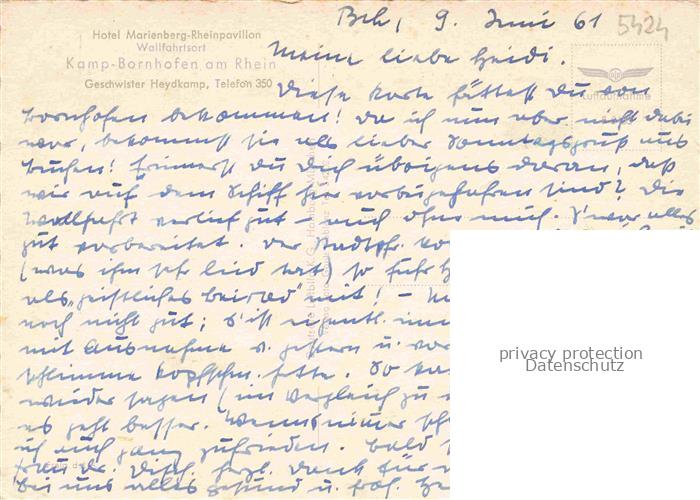 Hotel Marienberg-Rheinpavillon
Wallfahrtsort
Kamp-Bornhofen am Rhein
Geschwister Heydkamp, Telefon 350
Bch, 9. Juni 61
5424
Meine liebe Heidi.
Luftaufnahme
Diese Karte hättest Du von
Bornhofen bekommen! Da ich nun aber nicht dabei
war, bekommst sie als lieber Sonntagsgruß aus
Buchen! Erinnerst Du Dich übrigens daran, daß
wir auf dem Schiff hier vorbeigefahren sind? Die
Wallfahrt verlief gut – auch ohne mich. S'war alles
gut vorbereitet. Der Stadtpfr.
(was ihm sehr leid tat) so fuhr
als "geistliches Beirad" mit! –
noch nicht gut; s'ist eigentl. imm
mit Ausnahme v. gestern u. vor
schlimme Kopfschm. hatte. So
wieder sagen (im Vergleich zu
es geht besser. Wenns nimmer
ich auch ganz zufrieden. Bald
Frau Dr. herzl. Dank für
bei uns alles gesund u.
privacy protection
Datenschutz